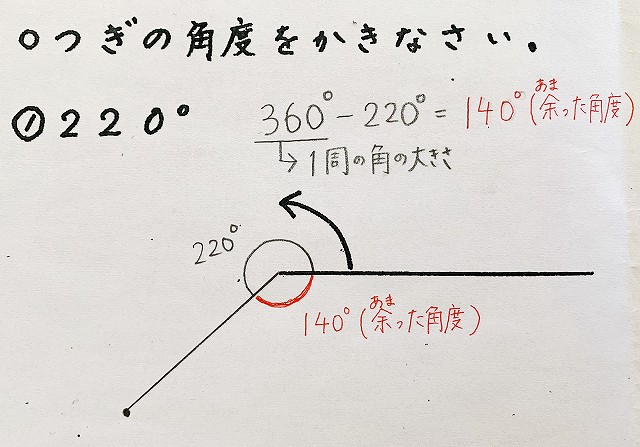 ○つぎの角度をかきなさい。
①220°
360°-220°=140°(余った角度)
あま
→1周の角の大きさ
220°
140°(余った角度)
あま